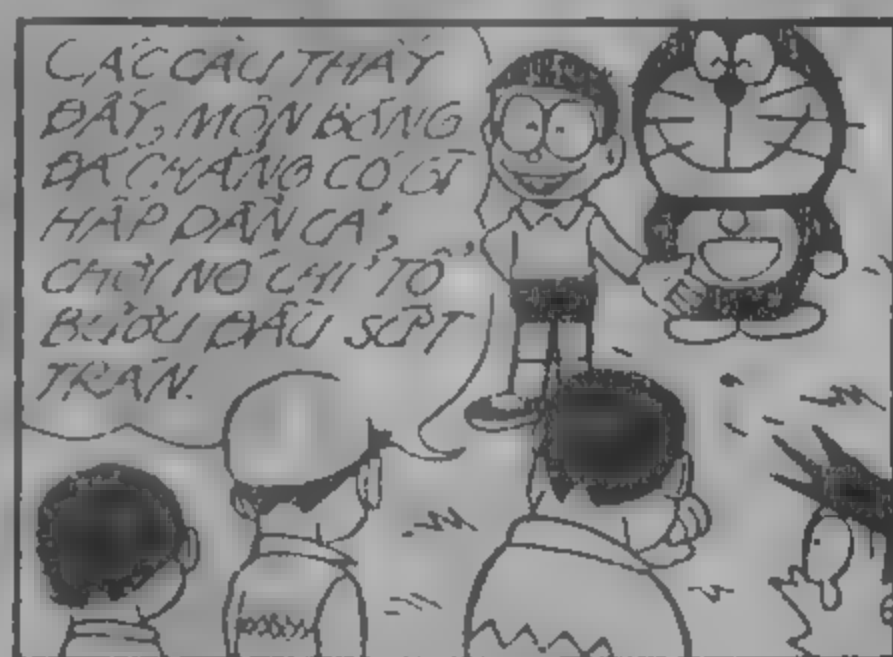 CÁC CẬU THẤY
ĐẤY, MÔN BÓNG
ĐÁ CHẲNG CÓ GÌ
HẤP DẪN CẢ,
CHƠI NÓ CHỈ TỔ
BƯƠU ĐẦU SỨT
TRÁN.